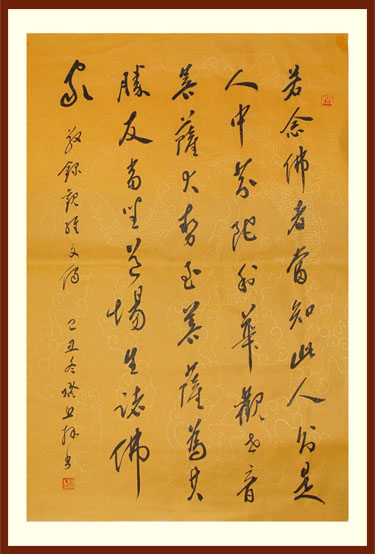 若念佛者當知此人是
人中芬陀利華觀世音
菩薩大勢至菩薩為其
勝友當坐道場生諸佛
家
敬錄觀經文 己丑冬 書